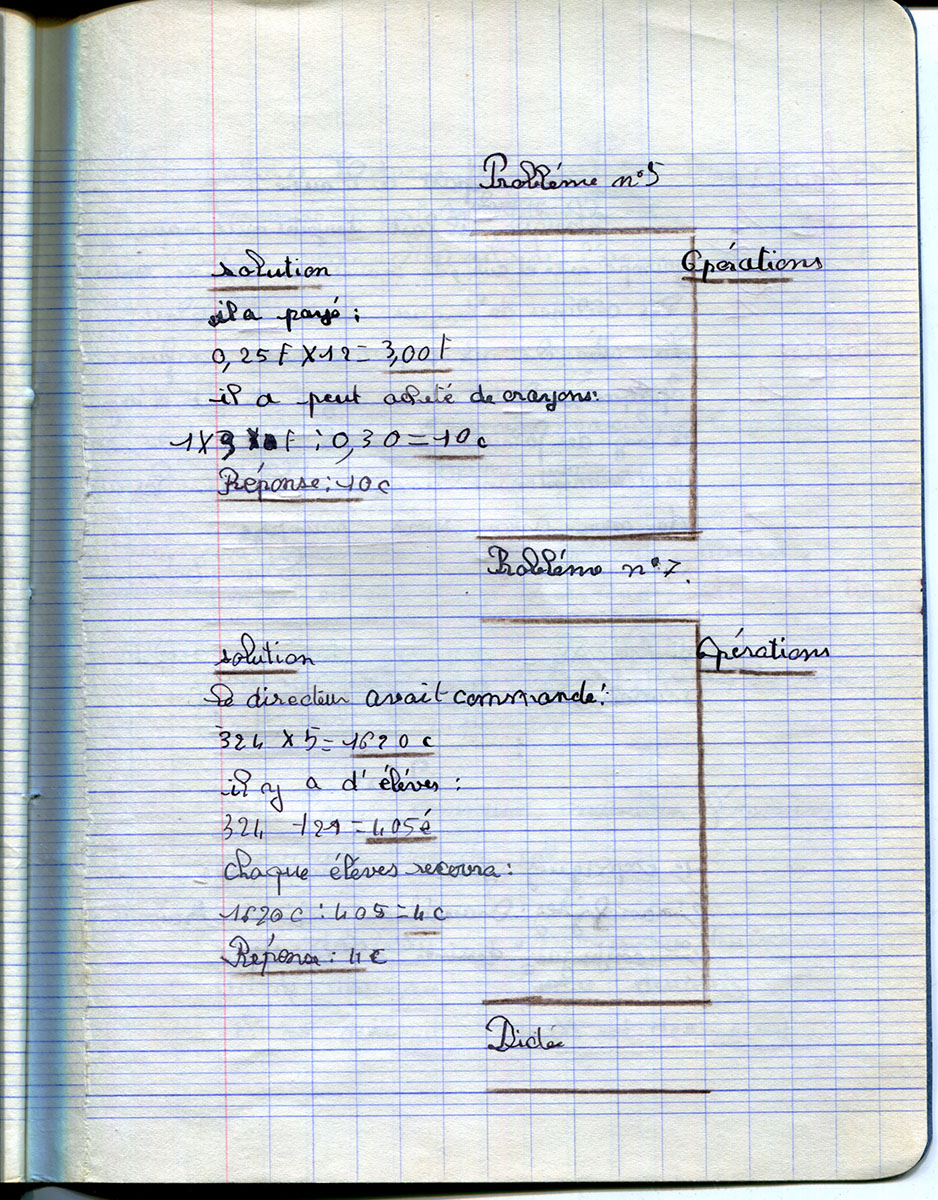 Probléme n°5
solution
Opérations
il a payé :
0,25 F X 12 = 3,00 F
il a peut acheté de crayons:
1 X 3 F : 0,30 = 10 c
Réponse : 10 c
Probléme n°7.
solution
Opérations
Le directeur avait commandé :
324 X 5 = 1620 c
il y a d'élèves :
324 = 405 é
chaque élèves recevra :
1620 c : 405 = 4 c
Réponse : 4 c
Dictée